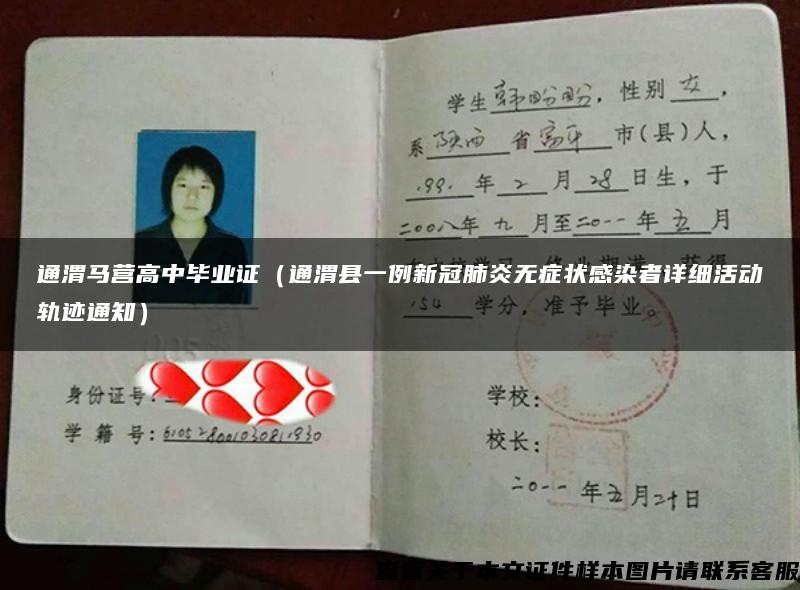 学生韩盼盼，性别女，
系陕西省富平市(县)人，
1991年2月28日生，于
二00八年九月至二0一一年五月
通渭马营高中毕业证（通渭县一例新冠肺炎无症状感染者详细活动
轨迹通知）
154学分，准予毕业。
身份证号：
学籍号：
学校：
校长：
二0一一年五月二十日
查看关于本文证件样本图片请联系客服